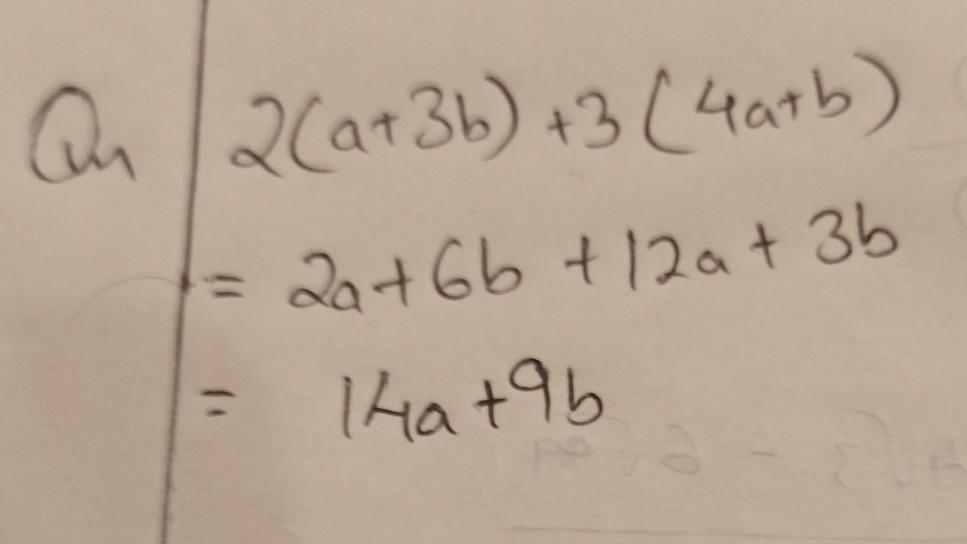 Qn 2(a+3b) +3(4a+b)
= 2a+6b +12a+ 3b
= 14a+9b